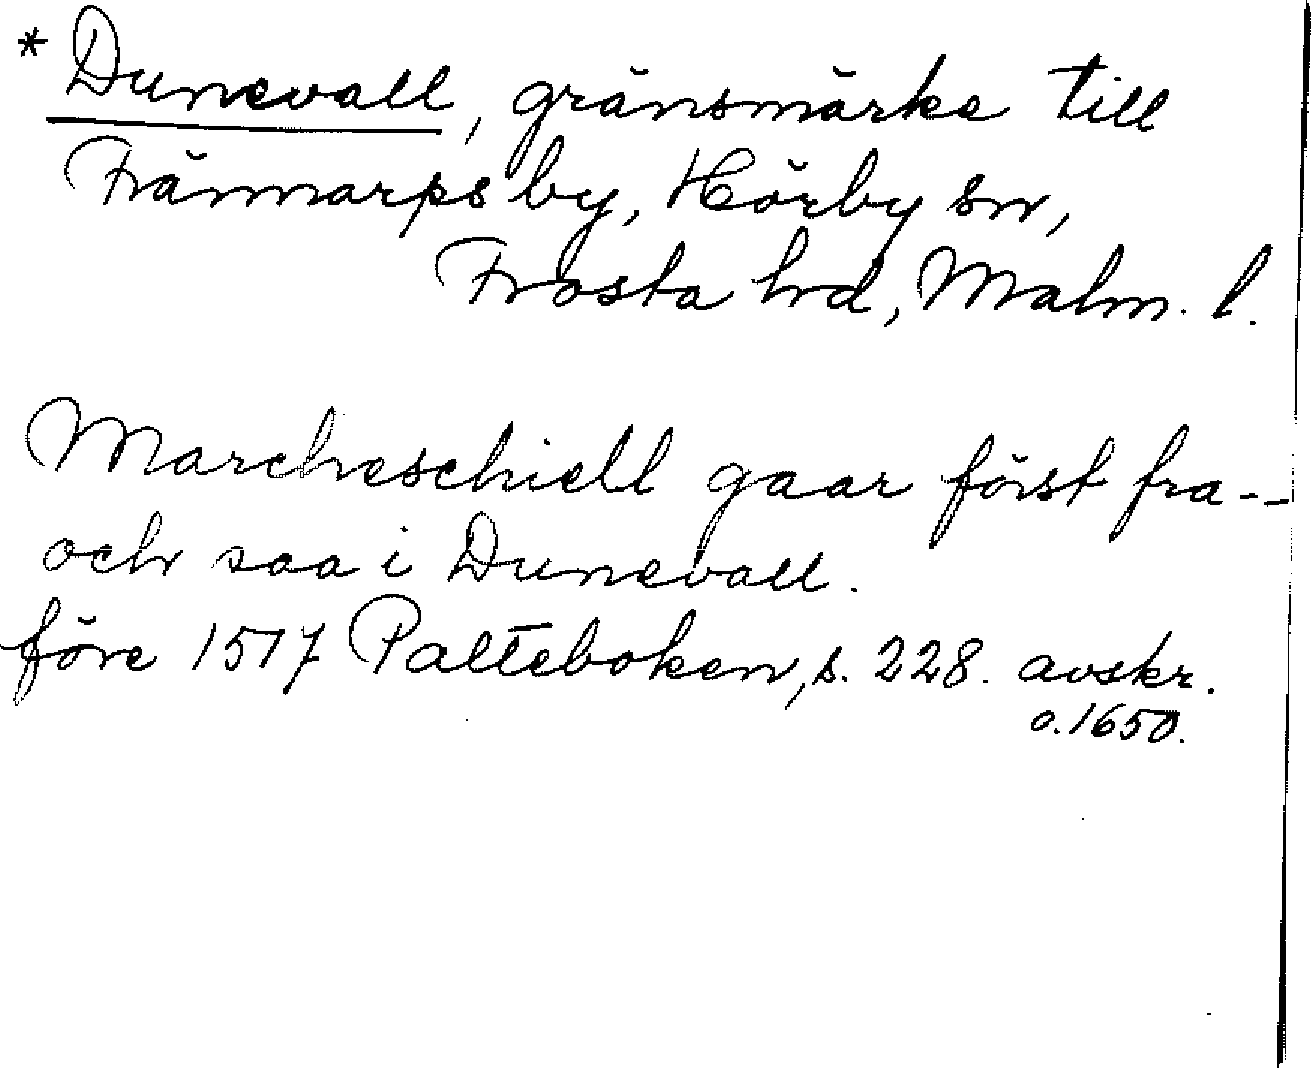 * Dunevall, gränsmärke till
Främmarps by, Hörby sn,
Frosta hd, Malm. l.
Marcheschiell gaar först fra --
och saa i Dunevall.
före 1517 Palteboken, s. 228. avskr.
o. 1650.